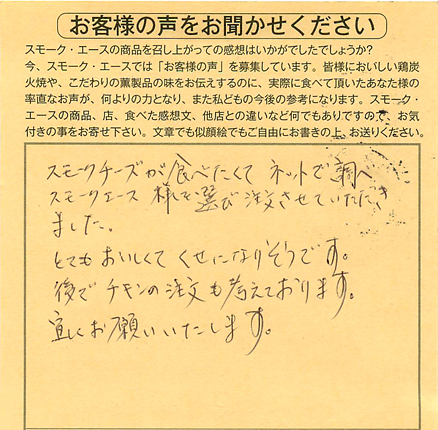 お客様の声をお聞かせください
スモーク・エースの商品を召し上がっての感想はいかがでしたでしょうか?
今、スモーク・エースでは「お客様の声」を募集しています。皆様においしい鶏炭
火焼や、こだわりの薫製品の味をお伝えするのに、実際に食べて頂いたあなた様の
率直なお声が、何よりの力となり、また私どもの今後の参考になります。スモーク・
エースの商品、店、食べた感想文、他店との違いなど何でもありですので、お気
付きの事をお寄せ下さい。文章でも似顔絵でもご自由にお書きの上、お送りください。
スモークチーズが食べたくて ネットで調べ
スモークエース 様を選び注文させていただき
ました。
とてもおいしくて くせになりそうです。
後で チキンの注文も考えております。
宜しくお願いいたします。